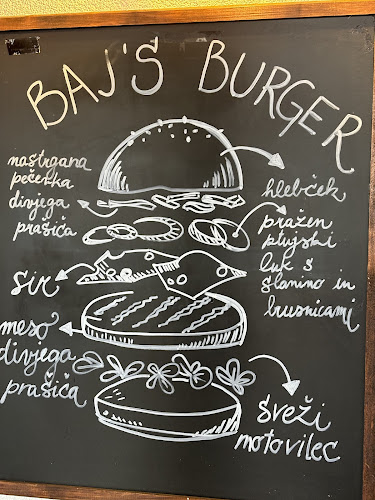 BAJ'S BURGER
nastrgana
pečenka
divjega
prašiča
hlebček
pražen
ptujski
luk s
slanino in
brusnicami
sir
meso
divjega
prašiča
sveži
motovilec